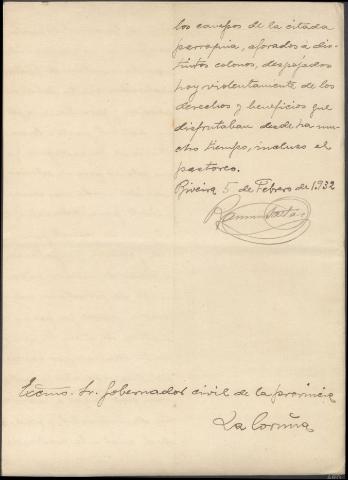 los campos de la citada
parroquia, aforados a dis-
tintos colonos, despojados
hoy violentamente de los
derechos y beneficios que
disfrutaban desde ha mu-
cho tiempo, incluso el
pastoreo.
Riveira 5 de Febrero de 1.932
Excmo. Sr. Gobernador civil de la provincia
La Coruña